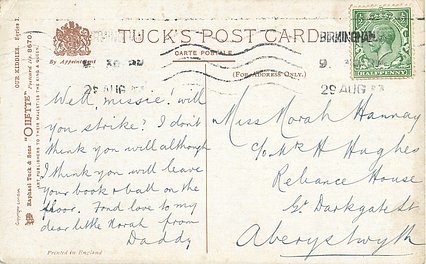 TUCK'S POST CARD
CARTE POSTALE
(FOR ADDRESS ONLY.)
By Appointment
BIRMINGHAM
29 AUG
29 AUG
HALFPENNY
OUR KIDDIES. Series I.
"OILETTE"
Raphael Tuck & Sons'
ART PUBLISHERS TO THEIR MAJESTIES THE KING & QUEEN.
Copyright London.
Well, missie! will
you strike? I don't
think you will although
I think you will leave
your book & ball on the
floor. Fond love to my
dear little Norah from
Daddy
Printed in England
Miss Norah Hannay
c/o Mrs H Hughes
Reliance House
Gt Darkgate St
Aberystwyth